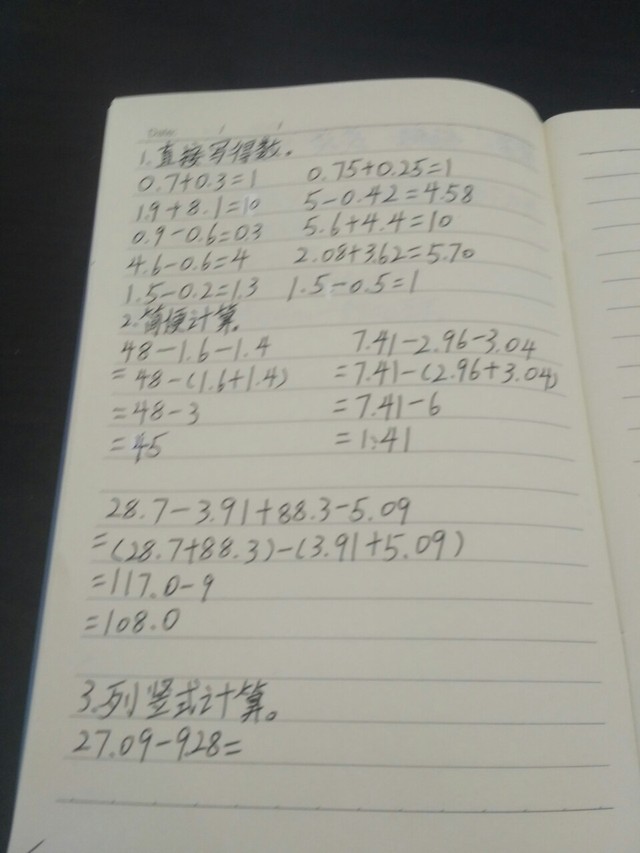 Date: / /
1.直接写得数。
0.7+0.3=1 0.75+0.25=1
1.9+8.1=10 5-0.42=4.58
0.9-0.6=0.3 5.6+4.4=10
4.6-0.6=4 2.08+3.62=5.70
1.5-0.2=1.3 1.5-0.5=1
2.简便计算。
48-1.6-1.4 7.41-2.96-3.04
=48-(1.6+1.4) =7.41-(2.96+3.04)
=48-3 =7.41-6
=45 =1.41
28.7-3.91+88.3-5.09
=(28.7+88.3)-(3.91+5.09)
=117.0-9
=108.0
3.列竖式计算。
27.09-9.28=